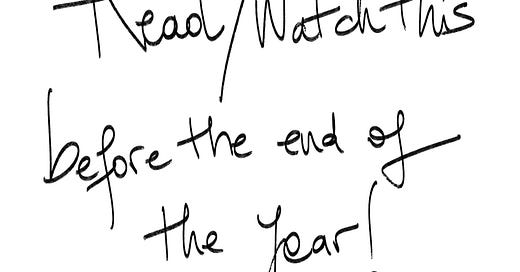 Read/Watch this
before the end of
the year!